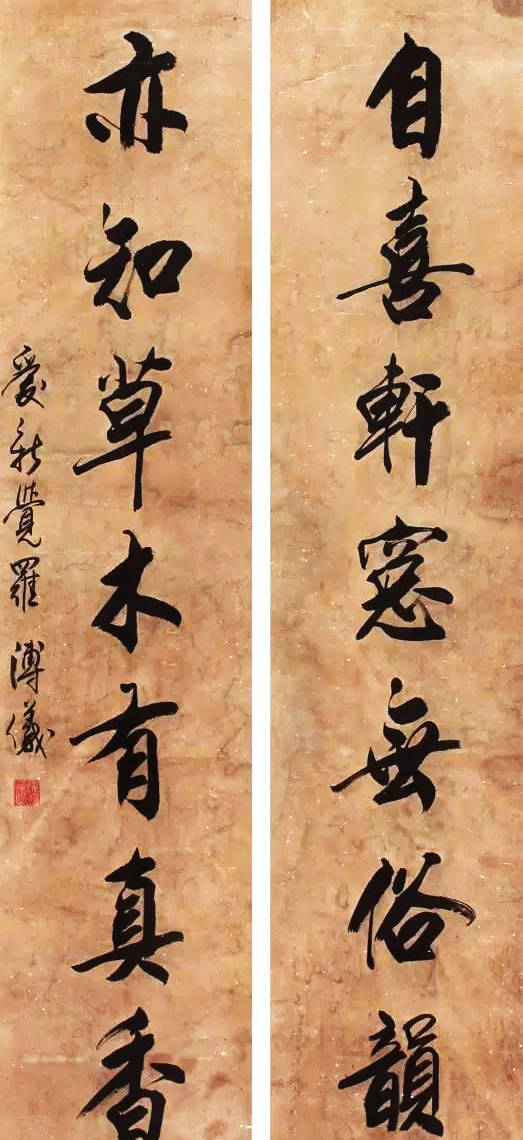 自喜軒窓無俗韻
亦知草木有真香
愛新覺羅 溥儀